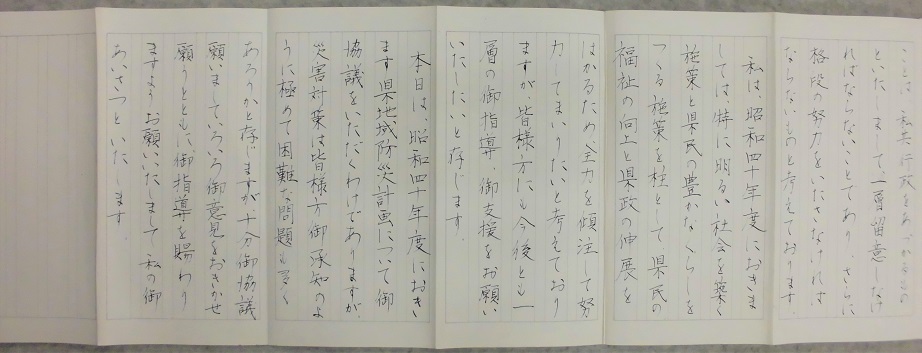 ことは、私共行政をあづかるもの
といたしまして、一層留意しなけ
ればならないことであり、さらに
格段の努力をいたさなければ
ならないものと考えております。
私は、昭和四十年度におきま
しては、特に明るい社会を築く
施策と県民の豊かなくらしを
つくる施策を柱として県民の
福祉の向上と県政の伸展を
はかるため全力を傾注して努
力してまいりたいと考えており
ますが皆様方にも今後とも一
層の御指導、御支援をお願い
いたしたいと存じます。
本日は、昭和四十年度におき
ます県地域防災計画について御
協議をいただくわけでありますが、
災害対策は皆様方御承知のよ
うに極めて困難な問題も多く
あろうかと存じますが、十分御協議
願いまして、いろいろ御意見をおきかせ
願うとともに御指導を賜わり
ますようお願いいたしまして私の御
あいさつといたします。